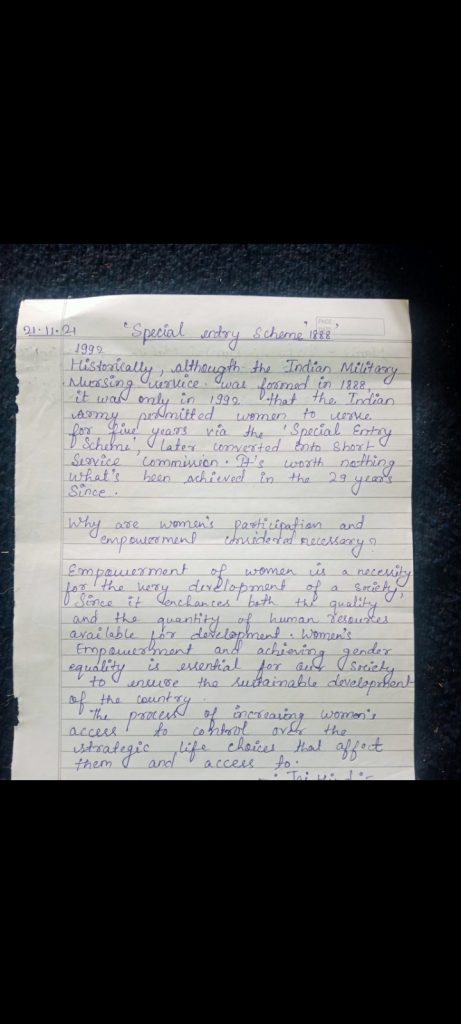 21.11.21
'Special entry Scheme' 1888'
PAGE
1992
Historically, althougth the Indian Military
Nursing service was formed in 1888,
it was only in 1992 that the Indian
Army permitted women to serve
for five years via the 'Special Entry
Scheme', later converted into Short
Service Commission. It's worth nothing
what's been achieved in the 29 years
Since.
Why are women's participation and
empowerment considered necessary?
Empowerment of women is a necessity
for the very development of a society,
Since it enchances both the quality
and the quantity of human resources
available for development. Women's
Empowerment and achieving gender
equality is essential for our society
to ensure the sustainable development
of the country.
The process of increasing women's
access to control over the
strategic life choices that affect
them and access to.
Jai Hind